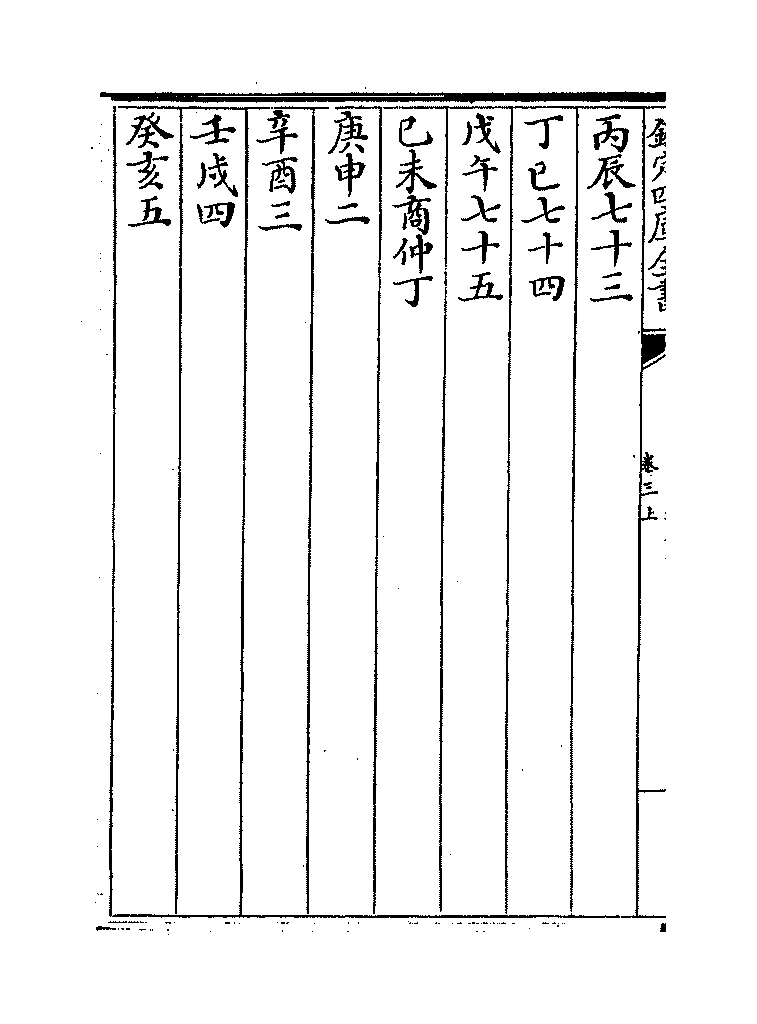 欽定四庫全書
卷三上
丙辰七十三
丁巳七十四
戊午七十五
己未商仲丁
庚申二
辛酉三
壬戌四
癸亥五